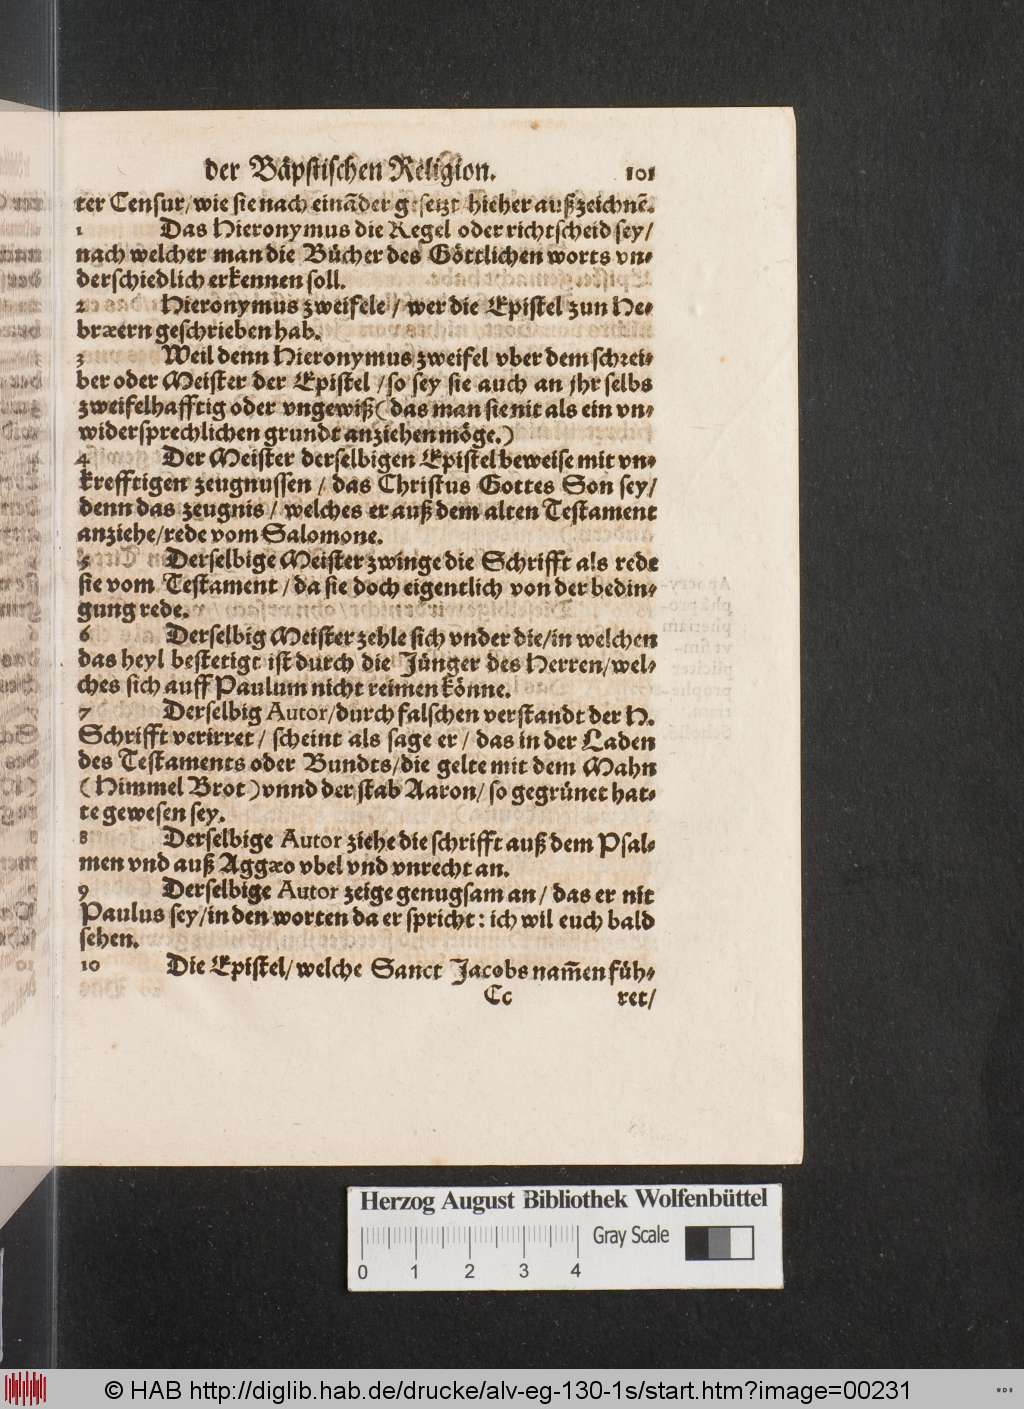 der Bäpstischen Religion. 101
rer Censur/wie sie nach eināder gesetzt hieher außzeichnē.
1 Das Hieronymus die Regel oder richtscheid sey/
nach welcher man die Bücher des Göttlichen worts vn-
derschiedlich erkennen soll.
2 Hieronymus zweifele / wer die Epistel zun He-
bræern geschrieben hab.
3 Weil denn Hieronymus zweifel vber dem schrei-
ber oder Meister der Epistel /so sey sie auch an jhr selbs
zweifelhafftig oder vngewiß (das man sie nit als ein vn-
widersprechlichen grundt anziehen möge.)
4 Der Meister derselbigen Epistel beweise mit vn-
krefftigen zeugnussen / das Christus Gottes Son sey/
denn das zeugnis / welches er auß dem alten Testament
anziehe/rede vom Salomone.
5 Derselbige Meister zwinge die Schrifft als rede
sie vom Testament /da sie doch eigentlich von der bedin-
gung rede.
6 Derselbig Meister zehle sich vnder die/in welchen
das heyl bestetigt ist durch die Jünger des Herren/wel-
ches sich auff Paulum nicht reimen könne.
7 Derselbig Autor/durch falschen verstandt der H.
Schrifft verirret / scheint als sage er / das in der Laden
des Testaments oder Bundts/die gelte mit dem Mahn
(Himmel Brot) vnnd der stab Aaron/ so gegrünet hat-
te gewesen sey.
8 Derselbige Autor ziehe die schrifft auß dem Psal-
men vnd auß Aggæo vbel vnd vnrecht an.
9 Derselbige Autor zeige genugsam an / das er nit
Paulus sey/in den worten da er spricht: ich wil euch bald
sehen.
10 Die Epistel/ welche Sanct Jacobs nam̄en füh-
Cc ret/
Herzog August Bibliothek Wolfenbüttel
Gray Scale
0 1 2 3 4
© HAB http://diglib.hab.de/drucke/alv-eg-130-1s/start.htm?image=00231